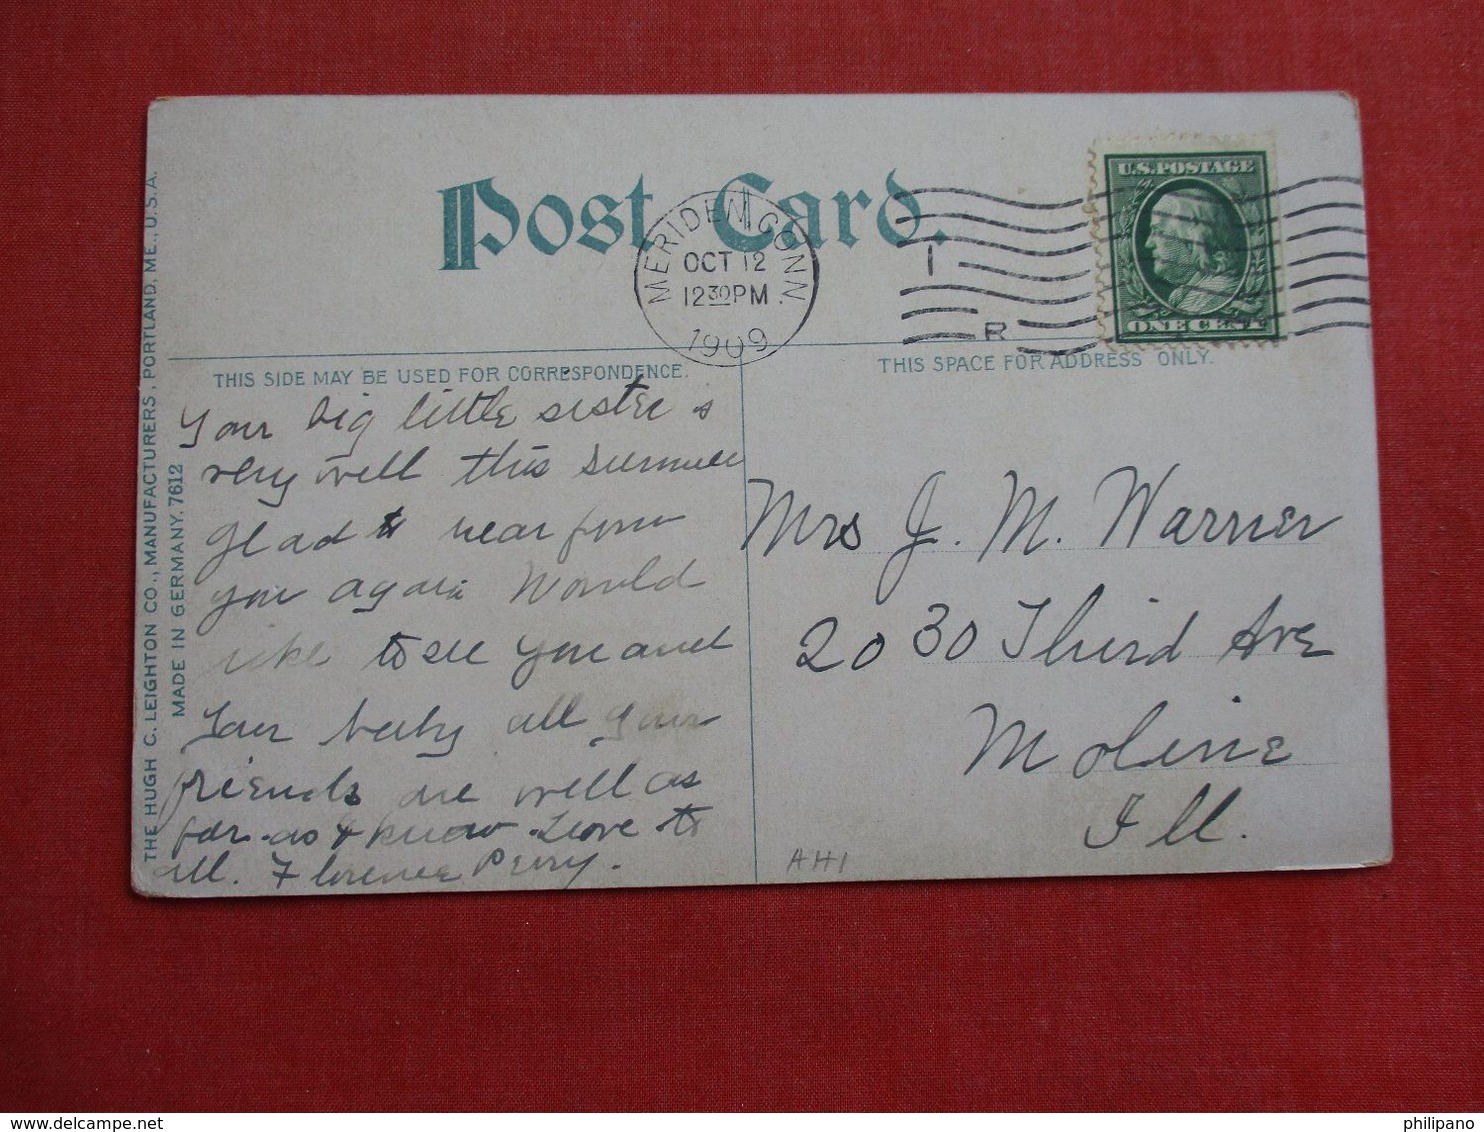 Post Card.
MERIDEN CONN
OCT 12
12 30 PM
1909
1
R
U.S. POSTAGE
ONE CENT
THE HUGH C. LEIGHTON CO., MANUFACTURERS, PORTLAND, ME., U.S.A.
MADE IN GERMANY. 7612
THIS SIDE MAY BE USED FOR CORRESPONDENCE.
Your big little sister s
very well this summer
Glad to hear from
you again Would
like to see you and
Your baby all your
friends are well as
far as I know. Love to
all. Florence Perry.
THIS SPACE FOR ADDRESS ONLY.
Mrs J. M. Warner
2030 Third Ave
Moline
Ill.
AH1
delcampe.net
philipano